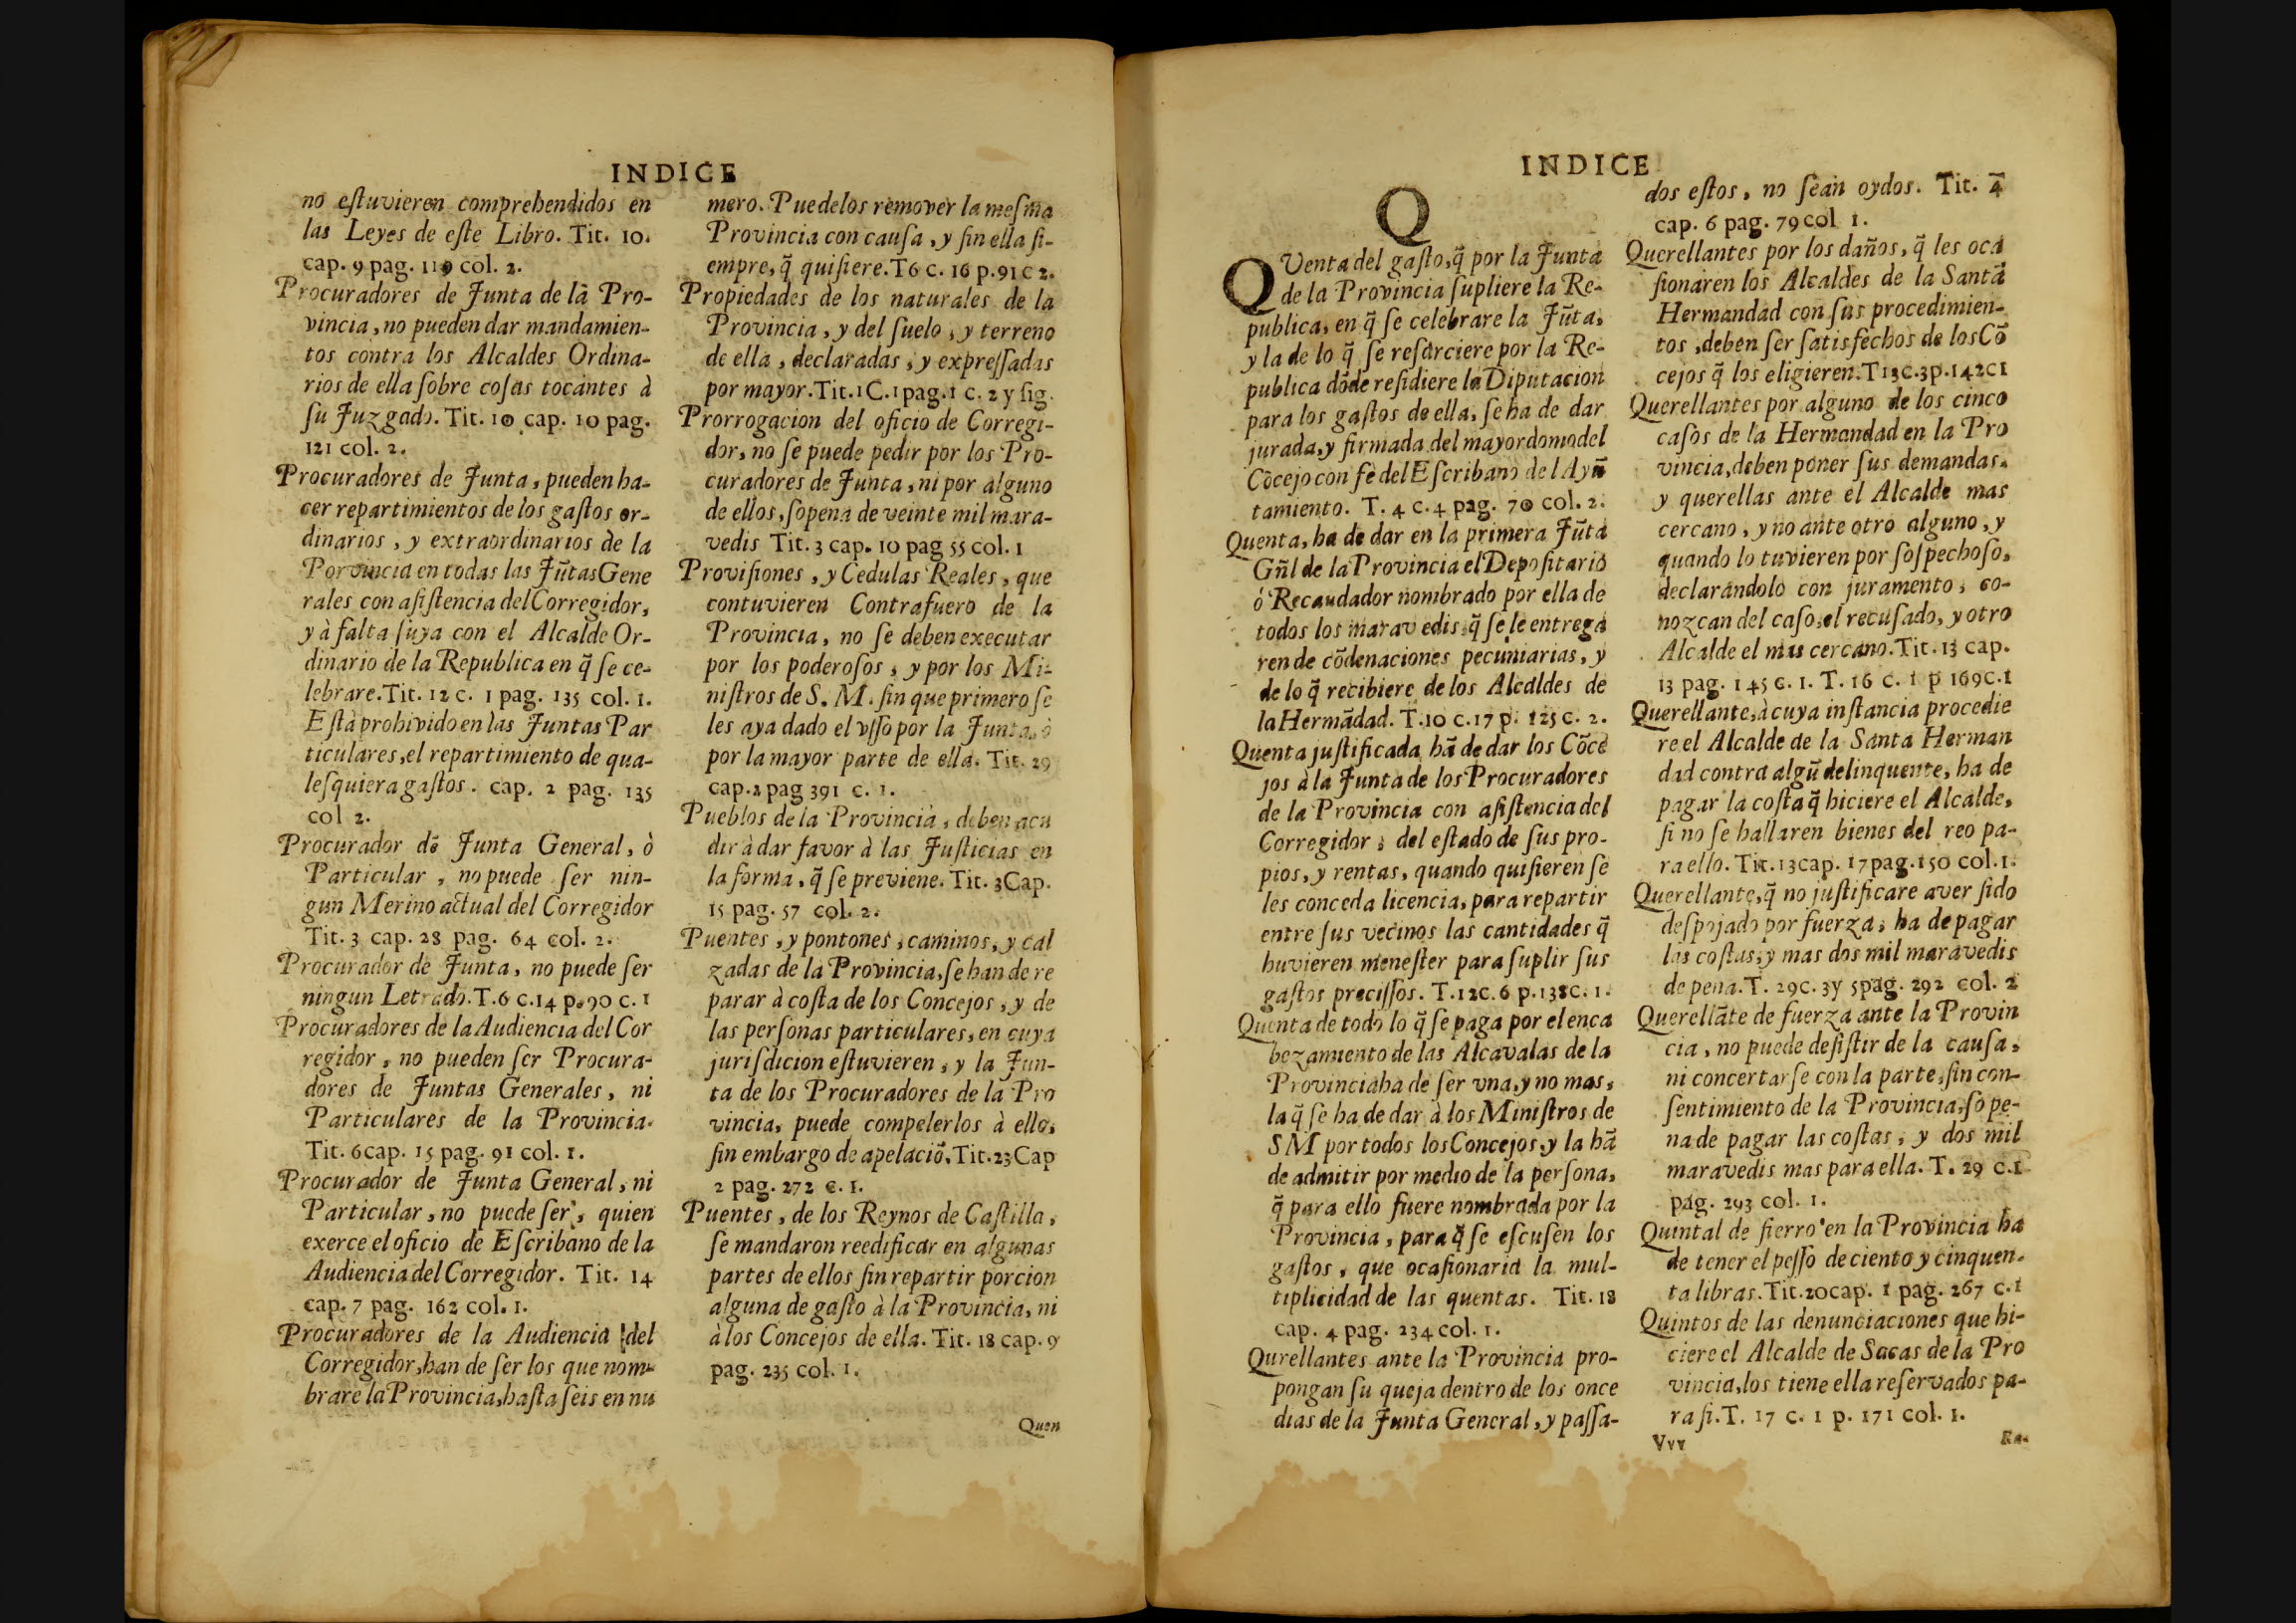 INDICE
no eſtuvieren comprehendidos en
las Leyes de eſte Libro. Tit. 10.
cap. 9 pag. 119 col. 2.
Procuradores de Junta de là Pro-
vincia, no pueden dar mandamien-
tos contra los Alcaldes Ordina-
rios de ella ſobre coſas tocantes à
ſu Juzgado. Tit. 10 cap. 10 pag.
121 col. 2.
Procuradores de Junta, pueden ha-
cer repartimientos de los gaſtos or-
dinarios, y extraordinarios de la
Porvincia en todas las Jũtas Gene
rales con aſiſtencia del Corregidor,
y à falta ſuya con el Alcalde Or-
dinario de la Republica en q̃ ſe ce-
lebrare. Tit. 12 c. 1 pag. 135 col. 1.
Eſtà prohivido en las Juntas Par
ticulares, el repartimiento de qua-
leſquiera gaſtos. cap. 2 pag. 135
col 2.
Procurador dē Junta General, ò
Particular, no puede ſer nin-
gun Merino actual del Corregidor
Tit. 3 cap. 28 pag. 64 col. 2.
Procurador de Junta, no puede ſer
ningun Letrado. T. 6 c. 14 p. 90 c. 1
Procuradores de la Audiencia del Cor
regidor, no pueden ſer Procura-
dores de Juntas Generales, ni
Particulares de la Provincia.
Tit. 6 cap. 15 pag. 91 col. 1.
Procurador de Junta General, ni
Particular, no puede ſer, quien
exerce el oficio de Eſcribano de la
Audiencia del Corregidor. Tit. 14
cap. 7 pag. 162 col. 1.
Procuradores de la Audiencia del
Corregidor, han de ſer los que nom-
brare la Provincia, haſta ſeis en nu
mero. Puedelos remover la meſma
Provincia con cauſa, y ſin ella ſi-
empre, q̃ quiſiere. T6 c. 16 p. 91 c 2.
Propiedades de los naturales de la
Provincia, y del ſuelo, y terreno
de ella, declaradas, y expreſſadas
por mayor. Tit. 1 C. 1 pag. 1 c. 2 y ſig.
Prorrogacion del oficio de Corregi-
dor, no ſe puede pedir por los Pro-
curadores de Junta, ni por alguno
de ellos, ſopena de veinte mil mara-
vedis Tit. 3 cap. 10 pag 55 col. 1
Proviſiones, y Cedulas Reales, que
contuvieren Contrafuero de la
Provincia, no ſe deben executar
por los poderoſos, y por los Mi-
niſtros de S. M. ſin que primero ſe
les aya dado el vſſo por la Junta, ò
por la mayor parte de ella. Tit. 29
cap. 2 pag 391 c. 1.
Pueblos de la Provincia, deben acu
dir à dar favor à las Juſticias en
la forma, q̃ ſe previene. Tit. 3 Cap.
15 pag. 57 col. 2.
Puentes, y pontones, caminos, y cal
zadas de la Provincia, ſe han de re
parar à coſta de los Concejos, y de
las perſonas particulares, en cuya
juriſdicion eſtuvieren, y la Jun-
ta de los Procuradores de la Pro
vincia, puede compelerlos à ello,
ſin embargo de apelaciõ. Tit. 23 Cap
2 pag. 272 c. 1.
Puentes, de los Reynos de Caſtilla,
ſe mandaron reedificar en algunas
partes de ellos ſin repartir porcion
alguna de gaſto à la Provincia, ni
à los Concejos de ella. Tit. 18 cap. 9
pag. 235 col. 1.
Quen
INDICE
Q
QVenta del gaſto, q̃ por la Junta
de la Provincia ſupliere la Re-
publica, en q̃ ſe celebrare la Jũta,
y la de lo q̃ ſe reſarciere por la Re-
publica dõde reſidiere la Diputacion
para los gaſtos de ella, ſe ha de dar
jurada, y firmada del mayordomo del
Cõcejo con fè del Eſcribano del Ayũ
tamiento. T. 4 c. 4 pag. 70 col. 2.
Quenta, ha de dar en la primera Jũta
Gñl de la Provincia el Depoſitario
ó Recaudador nombrado por ella de
todos los maravedis, q̃ ſe le entrega
ren de cõdenaciones pecuniarias, y
de lo q̃ recibiere de los Alcaldes de
la Hermãdad. T. 10 c. 17 p. 125 c. 2.
Quenta juſtificada hã de dar los Cõce
jos à la Junta de los Procuradores
de la Provincia con aſiſtencia del
Corregidor, del eſtado de ſus pro-
pios, y rentas, quando quiſieren ſe
les conceda licencia, para repartir
entre ſus vecinos las cantidades q̃
huvieren meneſter para ſuplir ſus
gaſtos preciſſos. T. 12 c. 6 p. 138 c. 1.
Quenta de todo lo q̃ ſe paga por el enca
bezamiento de las Alcavalas de la
Provincia ha de ſer vna, y no mas,
la q̃ ſe ha de dar à los Miniſtros de
S M por todos los Concejos, y la hã
de admitir por medio de la perſona,
q̃ para ello fuere nombrada por la
Provincia, para q̃ ſe eſcuſen los
gaſtos, que ocaſionaria la mul-
tiplicidad de las quentas. Tit. 18
cap. 4 pag. 234 col. 1.
Qurellantes ante la Provincia pro-
pongan ſu queja dentro de los once
dias de la Junta General, y paſſa-
dos eſtos, no ſean oydos. Tit. 4
cap. 6 pag. 79 col 1.
Querellantes por los daños, q̃ les oca
ſionaren los Alcaldes de la Santa
Hermandad con ſus procedimien-
tos, deben ſer ſatisfechos de los Cõ
cejos q̃ los eligieren. T 13 c. 3 p. 142 c 1
Querellantes por alguno de los cinco
caſos de la Hermandad en la Pro
vincia, deben poner ſus demandas.
y querellas ante el Alcalde mas
cercano, y no ante otro alguno, y
quando lo tuvieren por ſoſpechoſo,
declarándolo con juramento, co-
nozcan del caſo, el recuſado, y otro
Alcalde el mas cercano. Tit. 13 cap.
13 pag. 145 c. 1. T. 16 c. 1 p 169 c. 1
Querellante, à cuya inſtancia procedie
re el Alcalde de la Santa Herman
dad contra algũ delinquente, ha de
pagar la coſta q̃ hiciere el Alcalde,
ſi no ſe hallaren bienes del reo pa-
ra ello. Tit. 13 cap. 17 pag. 150 col. 1.
Querellante, q̃ no juſtificare aver ſido
deſpojado por fuerza, ha de pagar
las coſtas, y mas dos mil maravedis
de pena. T. 29 c. 3 y 5 pag. 292 col. 2
Querellãte de fuerza ante la Provin
cia, no puede deſiſtir de la cauſa,
ni concertarſe con la parte, ſin con-
ſentimiento de la Provincia, ſo pe-
na de pagar las coſtas, y dos mil
maravedis mas para ella. T. 29 c. 1
pag. 293 col. 1.
Quintal de fierro en la Provincia ha
de tener el peſſo de ciento y cinquen-
ta libras. Tit. 20 cap. 1 pag. 267 c. 1
Quintos de las denunciaciones que hi-
ciere el Alcalde de Sacas de la Pro
vincia, los tiene ella reſervados pa-
ra ſi. T. 17 c. 1 p. 171 col. 1.
Vvv
Ra-